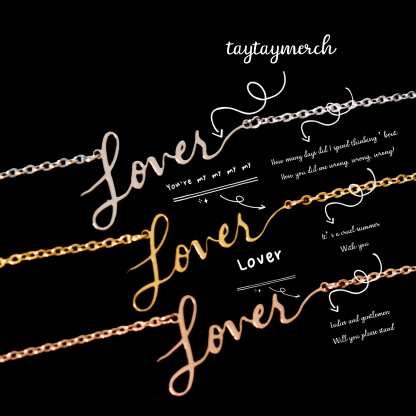 taytaymerch
Lover
How many days did I spend thinking 'bout
How you did me wrong, wrong, wrong?
You're my my my my
Lover
It's a cruel summer
With you
Lover
Lover
ladies and gentlemen
Will you please stand